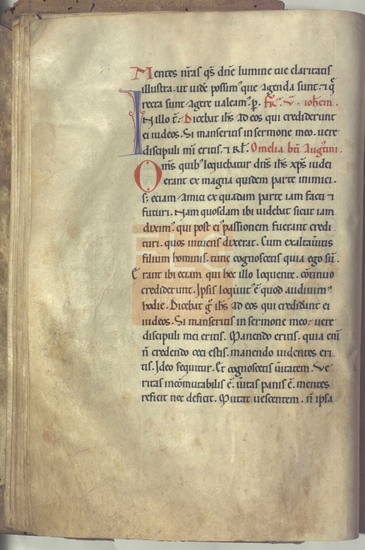 Mentes nr̄as qs̄ dn̄e lumine tue claritatis
illustra. ut uide possim' que agenda sunt. ⁊ q̄
recta sunt agere ualeam'. p. Fr̄. v. ioh̄em.
In illo t̄. Dicebat ih̄s ad eos qui crediderunt
ei iudeos. Si manseritis in sermone meo. uere
discipuli mei eritis. ⁊ rł. Omelia bī Augtini.
Om̄s quib' loquebatur dn̄s ih̄s xp̄s iudei
erant ex magna quidem parte inimici.
s; eciam amici ex quadam parte iam facti ⁊
futuri. Nam quosdam ibi uidebat sicut iam
dixim'. qui post ei' passionem fuerant credi
turi. quos intuens dixerat. Cum exaltaueritis
filium hominis. tunc cognoscetis quia ego sū.
Erant ibi eciam qui hec illo loquente. cōtinuo
crediderunt. Ipsis loquit' ē quod audiuim'
hodie. Dicebat g ih̄s ad eos qui crediderunt ei
iudeos. Si manseritis in sermone meo. uere
discipuli mei eritis. Manendo eritis. quia enī
n̄ credendo ceci estis. manendo uidentes eri
tis. Ideo sequitur. Et cognoscetis ūitatem. Ve
ritas incōmutabilis ē. ūitas panis ē. mentes
reficit nec deficit. Mutat uescentem. n̄ ipsa